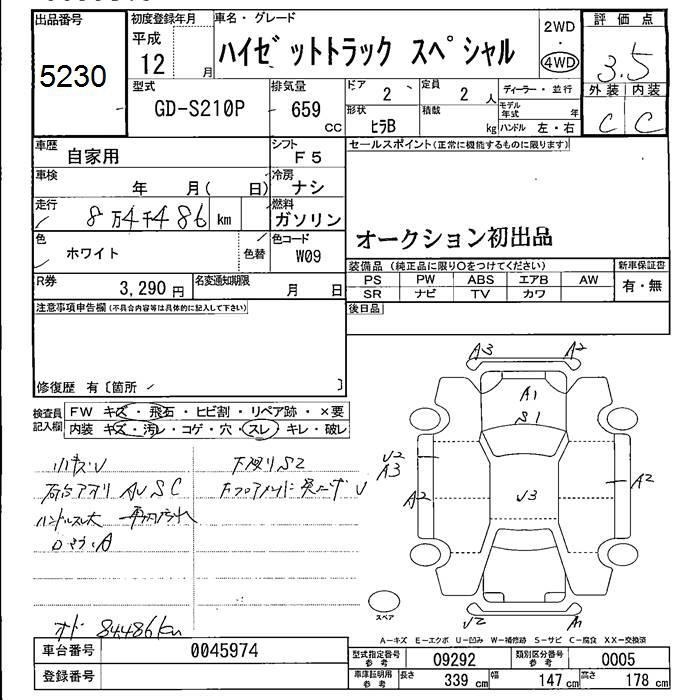 出品番号 初度登録年月 車名・グレード 2WD ・ 4WD 評価点
5230 平成 12 月 ハイゼットトラック スペシャル 3.5
型式 排気量 ドア 2 定員 2 人 ディーラー・並行 外装 内装
GD-S210P 659 cc 形状 ヒラB 積載 kg モデル年式 年 C C
ハンドル 左・右
車歴 自家用 シフト F5 セールスポイント(正常に機能するものに限ります)
車検 年 月( 日) 冷房 ナシ
走行 8万4千486 km 燃料 ガソリン
オークション初出品
色 ホワイト 色替 色コード W09
装備品 (純正品に限り○をつけてください) 新車保証書
R券 3,290円 名変通知期限 月 日 PS PW ABS エアB AW 有・無
SR ナビ TV カワ
注意事項申告欄(不具合内容等は具体的に記入して下さい) 後日品
修復歴 有〔箇所 〕
検査員記入欄 FW キズ・飛石・ヒビ割・リペア跡・×要
内装 キズ・汚レ・コゲ・穴・スレ・キレ・破レ
A3 A2
A1
S1
小キズU 下廻りS2
U2
A3
A2
アオリ AUSC
A2
U3
ハンドルスレ大
U2 A1
スペア
84486km
A-キズ E-エクボ U-凹み W-補修跡 S-サビ C-腐食 XX-交換済
車台番号 0045974 型式指定番号 参考 09292 類別区分番号 参考 0005
登録番号 車庫証明用 参考 長さ 339 cm 幅 147 cm 高さ 178 cm